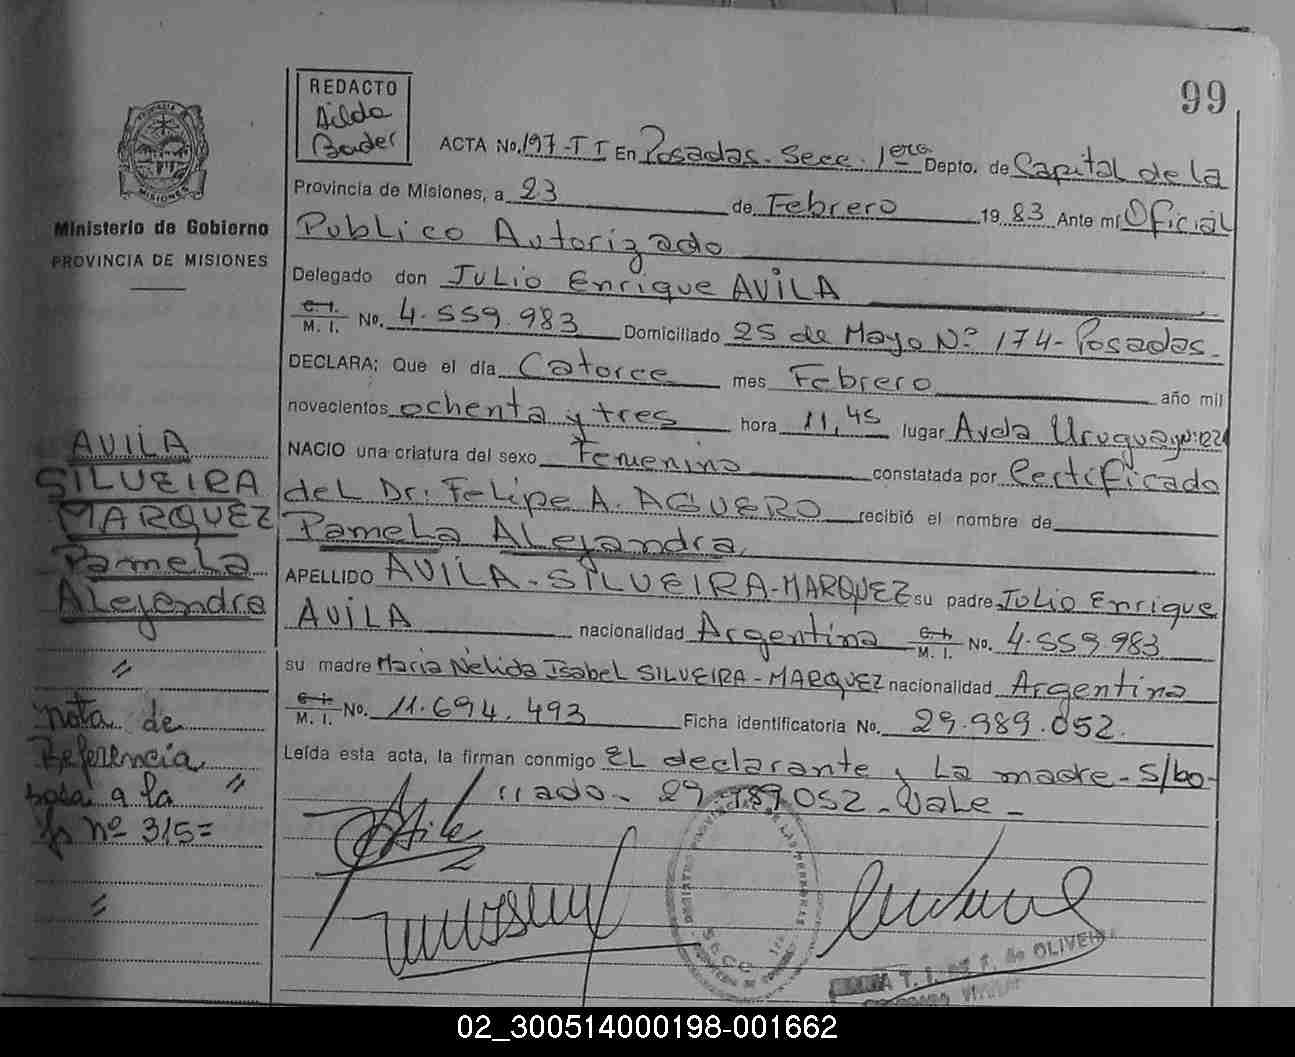 99
REDACTO
Ailda
Bader
PROVINCIA
MISIONES
Ministerio de Gobierno
PROVINCIA DE MISIONES
ACTA No. 197-TI En Posadas. Secc. 1era Depto. de Capital de la
Provincia de Misiones, a 23 de Febrero 1983 Ante mí Oficial
Publico Autorizado
Delegado don Julio Enrique AVILA
C. I.
M. I. No. 4.559.983 Domiciliado 25 de Mayo Nº 174-Posadas.
DECLARA: Que el día Catorce mes Febrero año mil
novecientos ochenta y tres hora 11,45 lugar Avda Uruguay
NACIO una criatura del sexo Femenino constatada por Certificado
del Dr. Felipe A. AGUERO recibió el nombre de
Pamela Alejandra
APELLIDO AVILA-SILVEIRA-MARQUEZ su padre Julio Enrique
AVILA nacionalidad Argentina C. I.
M. I. No. 4.559.983
su madre Maria Nélida Isabel SILVEIRA-MARQUEZ nacionalidad Argentina
C. I.
M. I. No. 11.694.493 Ficha identificatoria No. 29.989.052.
Leída esta acta, la firman conmigo EL declarante y La madre-s/bo-
rrado- 29.989.052-Vale-
AVILA
SILVEIRA
MARQUEZ
Pamela
Alejandra
"
nota de
Referencia
a la
nº 315=
DE LAS PERSONAS
SECC. 1ra
T. I. de OLIVEIRA
02_300514000198-001662